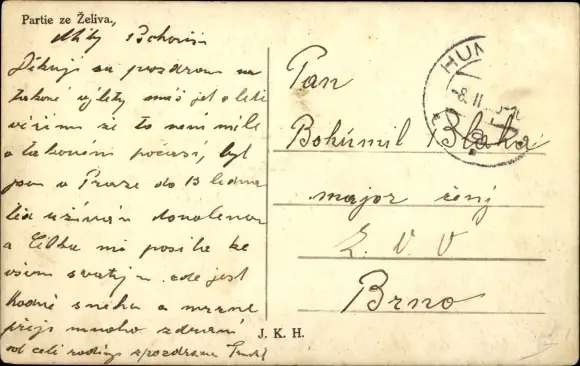 Partie ze Želiva.
Milý
Děkuji za pozdrav na
takové výlety máš jet v létě
věřím že to není milé
v takovém počasí, byl
jsem v Praze do 13 ledna
teď užívám dovolenou
a mi posila ke
všem zde jest
hodně sněhu a mrzne
přeji mnoho zdraví
od celé rodiny s pozdravem
J. K. H.
HUM
8. II
Pan
Bohumil Blaha
major
Z. V. V
Brno